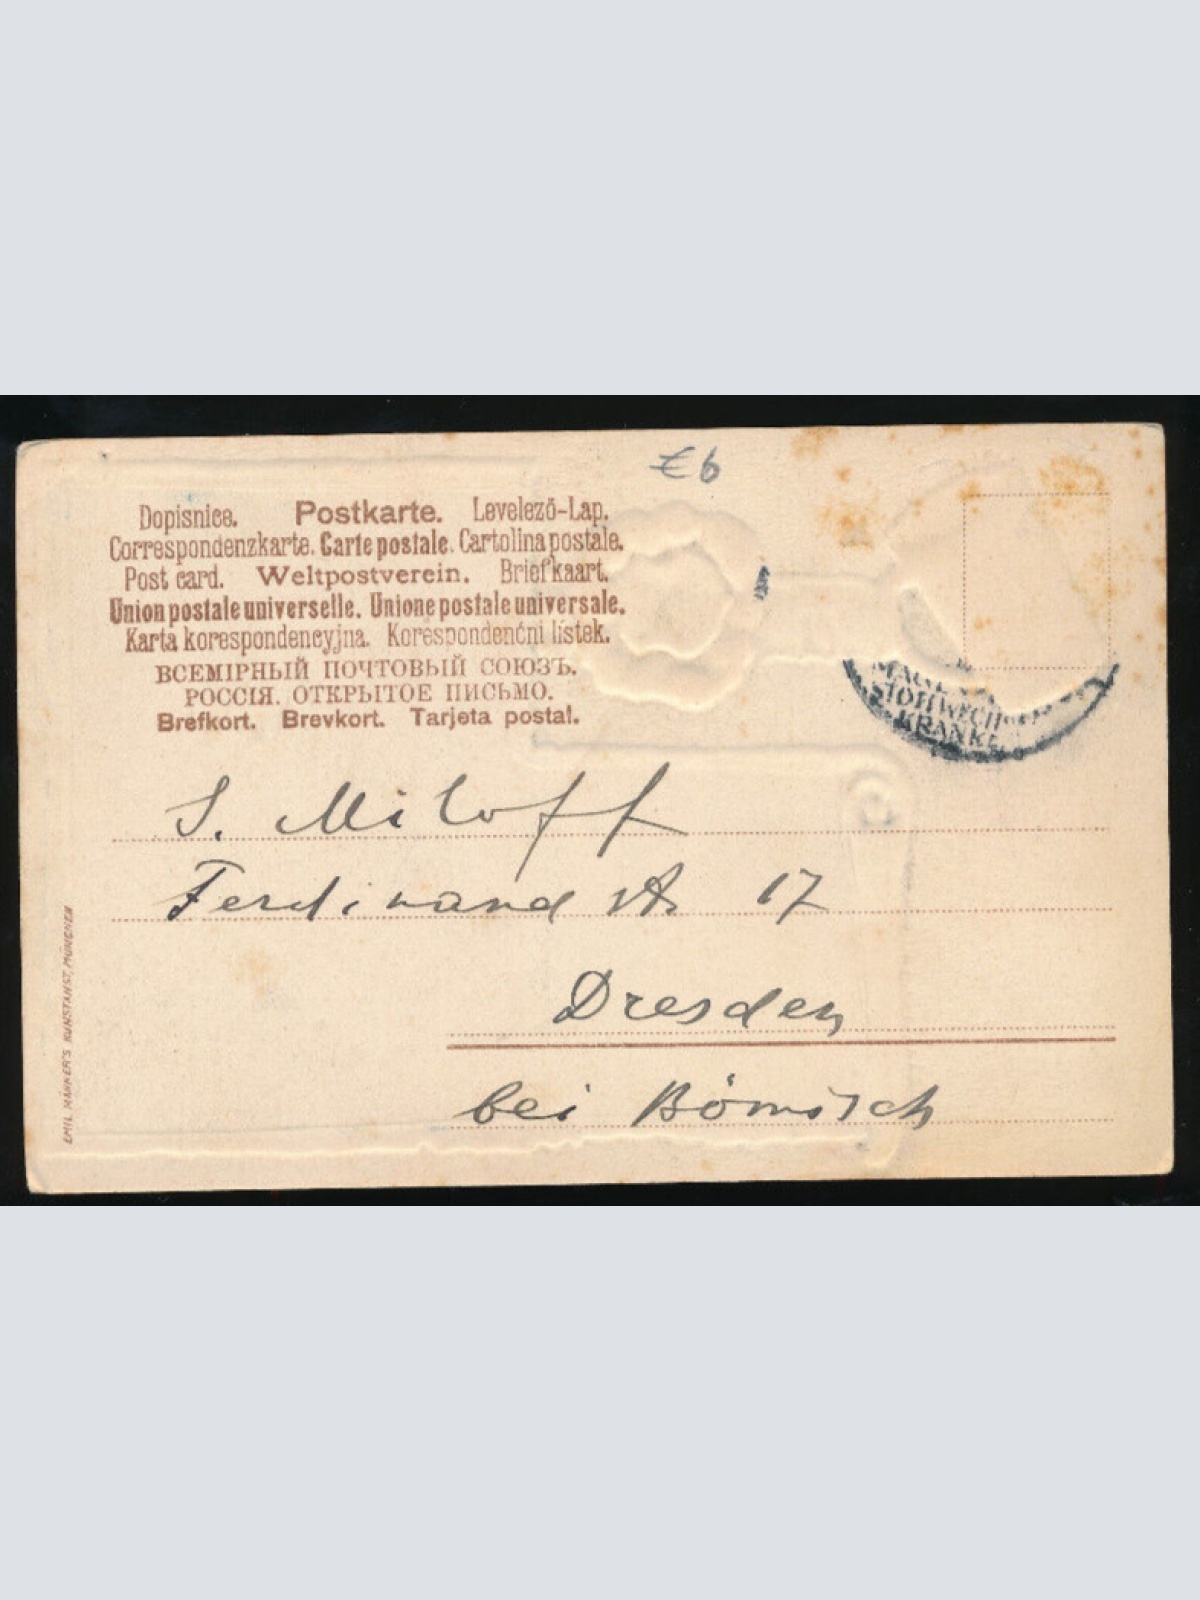 €6
Dopisnice. Postkarte. Levelező-Lap.
Correspondenzkarte. Carte postale. Cartolina postale.
Post card. Weltpostverein. Briefkaart.
Union postale universelle. Unione postale universale.
Karta korespondencyjna. Korespondenční lístek.
ВСЕМІРНЫЙ ПОЧТОВЫЙ СОЮЗЪ.
РОССІЯ. ОТКРЫТОЕ ПИСЬМО.
Brefkort. Brevkort. Tarjeta postal.
STOFFWECH
KRANK
S. Miloff
Ferdinand str 17
Dresden
bei Bömisch
EMIL MÄNNER'S KUNSTANST, MÜNCHEN